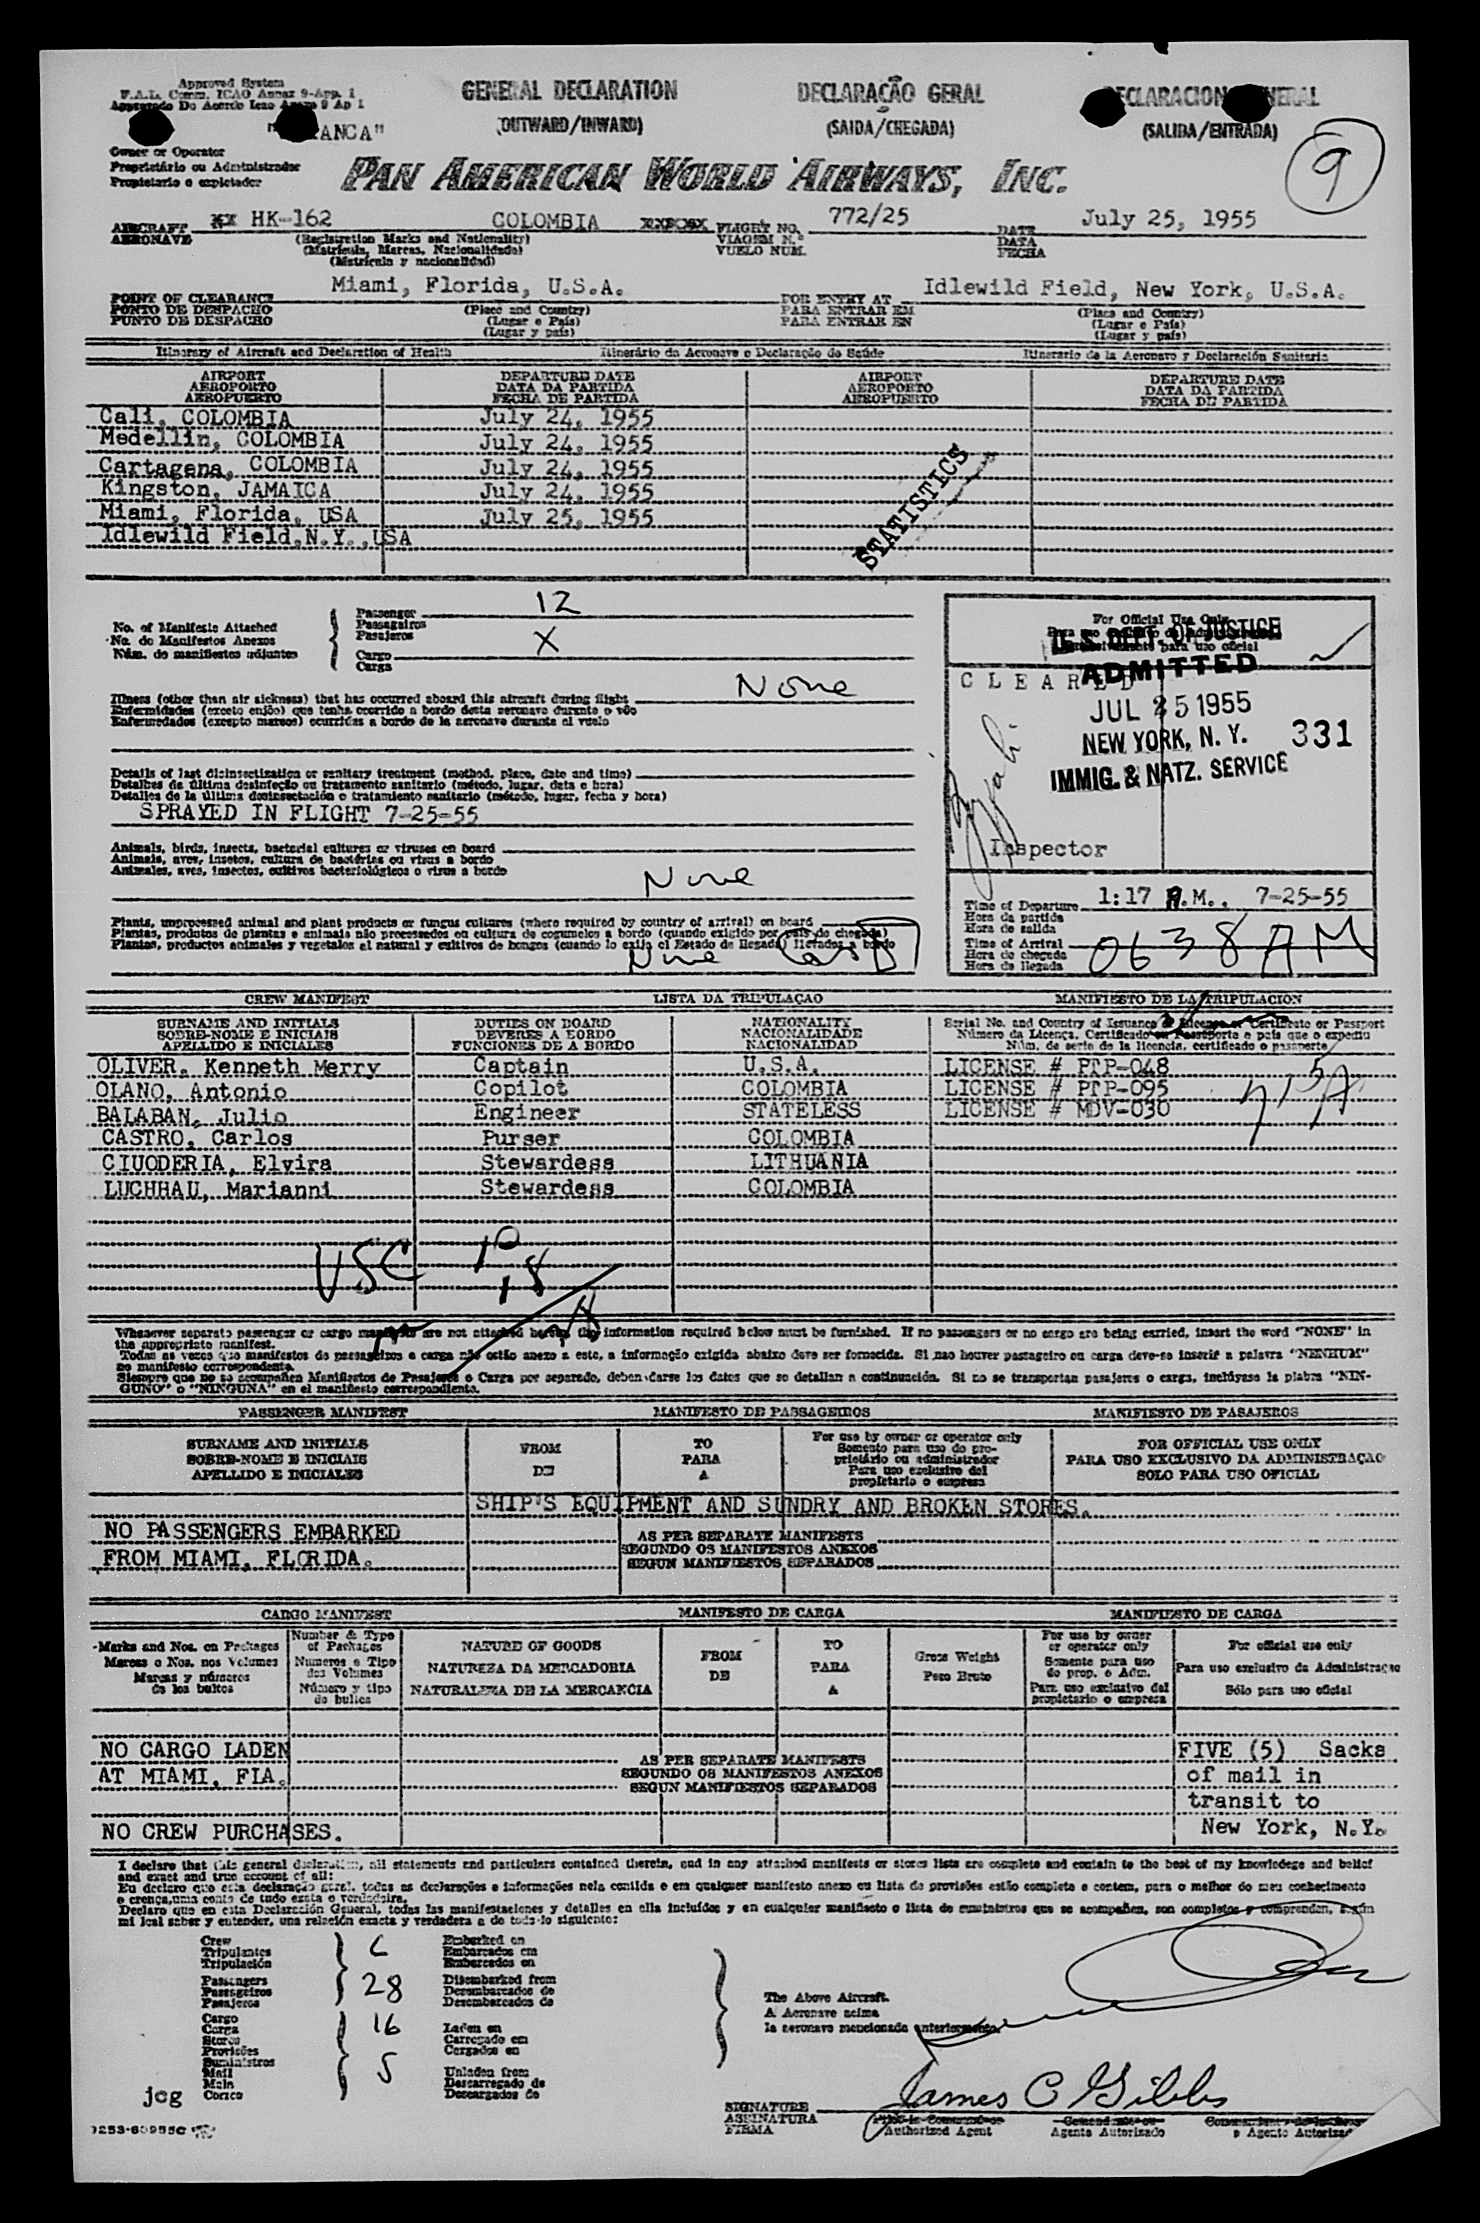 Approved System
F.A.L. Comm. ICAO Annex 9-App. 1
GENERAL DECLARATION
DECLARAÇÃO GERAL
(OUTWARD/INWARD)
(SAIDA/CHEGADA)
(SALIDA/ENTRADA)
ANCA"
9
Owner or Operator
Proprietário ou Administrador
Propietario o explotador
PAN AMERICAN WORLD AIRWAYS, INC.
AIRCRAFT HK-162 COLOMBIA FLIGHT NO. 772/25 DATE July 25, 1955
AERONAVE (Registration Marks and Nationality) VIAGEM N.º DATA
(Matrícula, Marcas, Nacionalidade) VUELO NUM. FECHA
(Matrícula y nacionalidad)
POINT OF CLEARANCE Miami, Florida, U.S.A. FOR ENTRY AT Idlewild Field, New York, U.S.A.
PONTO DE DESPACHO (Place and Country) PARA ENTRAR EM (Place and Country)
PUNTO DE DESPACHO (Lugar e País) PARA ENTRAR EN (Lugar e País)
(Lugar y país) (Lugar y país)
Itinerary of Aircraft and Declaration of Health Itinerário da Aeronave e Declaração de Saúde Itinerario de la Aeronave y Declaración Sanitaria
AIRPORT DEPARTURE DATE AIRPORT DEPARTURE DATE
AEROPORTO DATA DA PARTIDA AEROPORTO DATA DA PARTIDA
AEROPUERTO FECHA DE PARTIDA AEROPUERTO FECHA DE PARTIDA
Cali, COLOMBIA July 24, 1955
Medellin, COLOMBIA July 24, 1955
Cartagena, COLOMBIA July 24, 1955
Kingston, JAMAICA July 24, 1955
Miami, Florida, USA July 25, 1955
Idlewild Field,N.Y.,USA
STATISTICS
No. of Manifests Attached
No. do Manifestos Anexos
Núm. de manifiestos adjuntos
Passenger 12
Passageiros
Pasajeros X
Cargo
Carga
For Official Use Only
U. S. DEPT. OF JUSTICE
ADMITTED
CLEARED
JUL 25 1955
NEW YORK, N. Y. 331
IMMIG. & NATZ. SERVICE
Inspector
Illness (other than air sickness) that has occurred aboard this aircraft during flight None
Enfermidades (exceto enjôo) que tenha ocorrido a bordo desta aeronave durante o vôo
Enfermedades (excepto mareos) ocurridas a bordo de la aeronave durante el vuelo
Details of last disinsectization or sanitary treatment (method, place, date and time)
Detalhes da última desinfeção ou tratamento sanitario (método, lugar, data e hora)
Detalles de la última desinsectación o tratamiento sanitario (método, lugar, fecha y hora)
SPRAYED IN FLIGHT 7-25-55
Animals, birds, insects, bacterial cultures or viruses on board
Animais, aves, insetos, cultura de bactérias ou vírus a bordo
Animales, aves, insectos, cultivos bacteriológicos o virus a bordo
None
Plants, unprocessed animal and plant products or fungus cultures (where required by country of arrival) on board
Plantas, produtos de plantas e animais não processados ou cultura de cogumelos a bordo (quando exigido por país de chegada)
Plantas, productos animales y vegetales al natural y cultivos de hongos (cuando lo exija el Estado de llegada) llevados a bordo
None
Time of Departure 1:17 A.M., 7-25-55
Hora da partida
Hora de salida
Time of Arrival 0638 AM
Hora de chegada
Hora de llegada
CREW MANIFEST LISTA DA TRIPULAÇAO MANIFIESTO DE LA TRIPULACION
SURNAME AND INITIALS DUTIES ON BOARD NATIONALITY Serial No. and Country of Issuance of License or Certificate or Passport
SOBRE-NOME E INICIAIS DEVERES A BORDO NACIONALIDADE Número da Licença, Certificado ou Passaporte e país que o expediu
APELLIDO E INICIALES FUNCIONES DE A BORDO NACIONALIDAD Núm. de serie de la licencia, certificado o pasaporte
OLIVER, Kenneth Merry Captain U.S.A. LICENSE # PTP-048
OLANO, Antonio Copilot COLOMBIA LICENSE # PTP-095
BALABAN, Julio Engineer STATELESS LICENSE # MDV-030
CASTRO, Carlos Purser COLOMBIA
CIUODERIA, Elvira Stewardess LITHUANIA
LUCHHAU, Marianni Stewardess COLOMBIA
USC 10
18
28
Whenever separate passenger or cargo manifests are not attached hereto, the information required below must be furnished. If no passengers or no cargo are being carried, insert the word "NONE" in
the appropriate manifest.
Todas as vezes que manifestos de passageiros e carga não estão anexo a este, a informação exigida abaixo deve ser fornecida. Si nao houver passageiro ou carga deve-se inserir a palavra "NENHUM"
no manifesto correspondente.
Siempre que no se acompañen Manifiestos de Pasajeros o Carga por separado, deben darse los datos que se detallan a continuación. Si no se transportan pasajeros o carga, inclúyase la plabra "NIN-
GUNO" o "NINGUNA" en el manifiesto correspondiente.
PASSENGER MANIFEST MANIFESTO DE PASSAGEIROS MANIFIESTO DE PASAJEROS
SURNAME AND INITIALS FROM TO For use by owner or operator only FOR OFFICIAL USE ONLY
SOBRE-NOME E INICIAIS DE PARA Somente para uso do pro-prietário ou administrador PARA USO EXCLUSIVO DA ADMINISTRAÇAO
APELLIDO E INICIALES A Para uso exclusivo del propietario o empresa SOLO PARA USO OFICIAL
SHIP'S EQUIPMENT AND SUNDRY AND BROKEN STORES.
NO PASSENGERS EMBARKED AS PER SEPARATE MANIFESTS
SEGUNDO OS MANIFESTOS ANEXOS
FROM MIAMI, FLORIDA. SEGUN MANIFIESTOS SEPARADOS
CARGO MANIFEST MANIFESTO DE CARGA MANIFIESTO DE CARGA
Marks and Nos. on Packages Number & Type of Packages NATURE OF GOODS FROM TO Gross Weight For use by owner or operator only For official use only
Marcas e Nos. nos Volumes Numeros e Tipo dos Volumes NATUREZA DA MERCADORIA DE PARA Peso Bruto Somente para uso do prop. e Adm. Para uso exclusivo da Administraçao
Marcas y números de los bultos Número y tipo de bultos NATURALEZA DE LA MERCANCIA A Para uso exclusivo del propietario o empresa Sólo para uso oficial
NO CARGO LADEN AS PER SEPARATE MANIFESTS FIVE (5) Sacks
AT MIAMI, FLA. SEGUNDO OS MANIFESTOS ANEXOS of mail in
SEGUN MANIFIESTOS SEPARADOS transit to
NO CREW PURCHASES. New York, N.Y.
I declare that this general declaration, all statements and particulars contained therein, and in any attached manifests or stores lists are complete and contain to the best of my knowledge and belief
and exact and true account of all:
Eu declaro que esta declaração geral, todas as declarações e informações nela contida e em qualquer manifesto anexo ou lista de provisões estão completa e contem, para o melhor do meu conhecimento
e crença, uma conta de tudo exata e verdadeira.
Declaro que en esta Declaración General, todas las manifestaciones y detalles en ella incluídos y en cualquier manifiesto o lista de suministros que se acompañen, son completos y comprenden, según
mi leal saber y entender, una relación exacta y verdadera a de todo lo siguiente:
Crew
Tripulantes
Tripulación
Passengers 28
Passageiros
Pasajeros
Cargo 16
Carga
Stores
Provisões
Suministros 5
Mail
Mala
Correo
Embarked on
Embarcados em
Embarcados en
Disembarked from
Desembarcados de
Desembarcados de
Laden on
Carregado em
Cargados en
Unladen from
Descarregado de
Descargados de
The Above Aircraft.
A Aeronave acima
la aeronave mencionada anteriormente.
jcg
SIGNATURE James C Gibbs
ASSINATURA
FIRMA
Authorized Agent Agente Autorizado